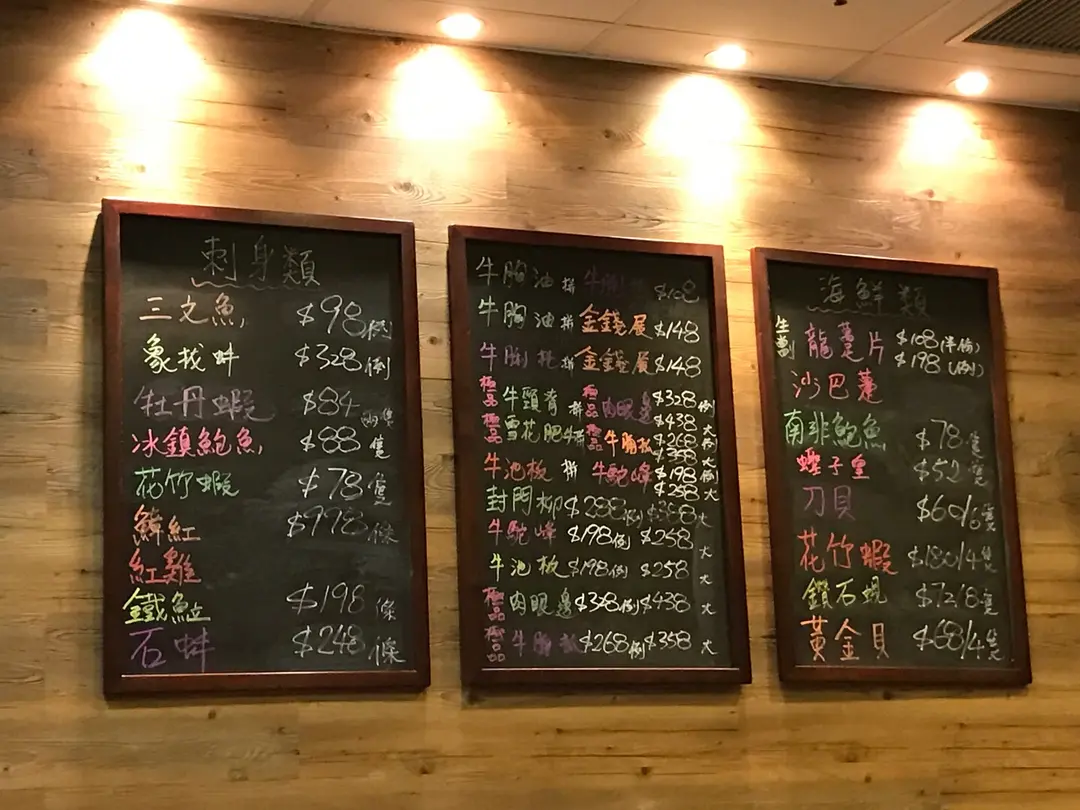 刺身類
三文魚 $98例
象拔蚌 $328例
牡丹蝦 $84兩隻
冰鎮鮑魚 $88隻
花竹蝦 $78隻
鮮紅 $998條
紅雞
鐵鮎 $198條
石蚌 $248條
牛胸油拼牛 $108
牛胸油拼金錢展 $148
牛脷拼金錢展 $148
極品牛頸脊拼極品肉眼邊 $328例 $438大
極品雪花肥牛拼極品牛胸 $268例 $358大
牛池板拼牛駝峰 $198例 $258大
封門柳 $288例 $368大
牛駝峰 $198例 $258大
牛池板 $198例 $258大
極品肉眼邊 $328例 $438大
極品牛胸 $268例 $358大
海鮮類
生劏龍躉片 $108(半份) $198(例)
沙巴躉
南非鮑魚 $78隻
蟶子皇 $52隻
刀貝 $60/6隻
花竹蝦 $180/4隻
鑽石蜆 $72/8隻
黃金貝 $68/4隻